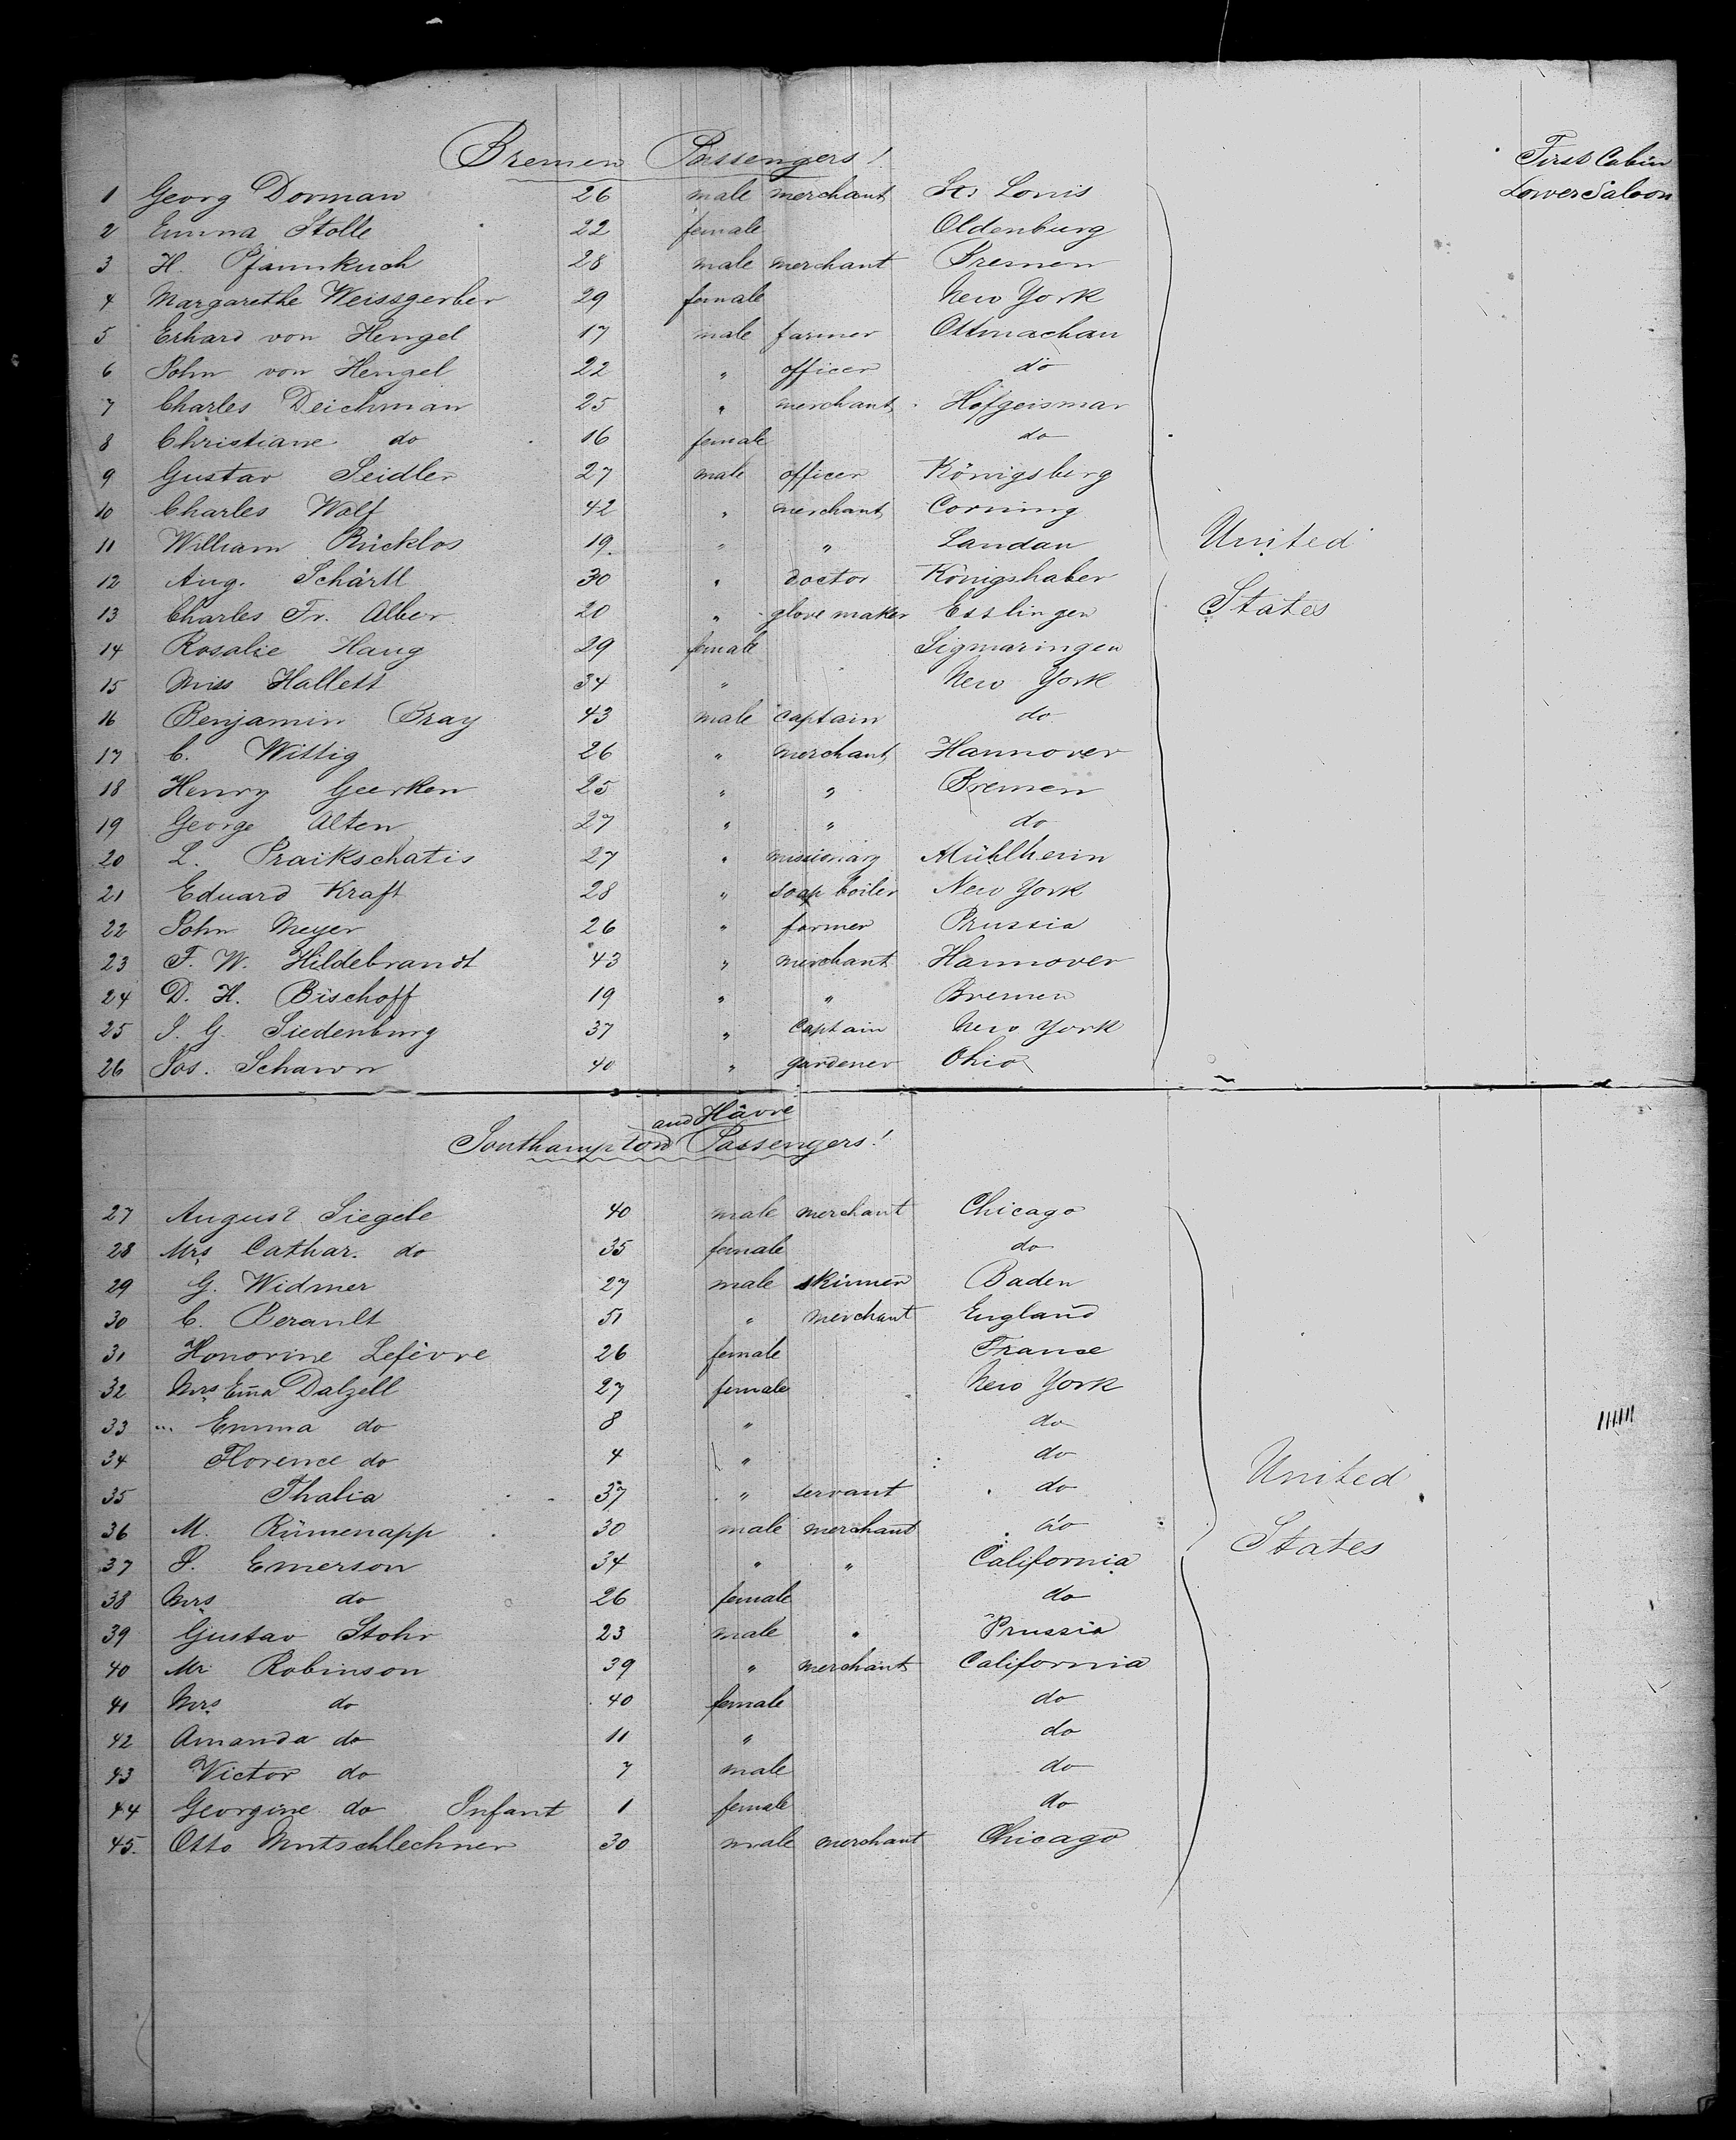 Bremen Passengers!
First Cabin
Lower Saloon
1 Georg Dorman 26 male merchant St. Louis
2 Emma Stolle 22 female Oldenburg
3 H. Pfannkuch 28 male merchant Bremen
4 Margarethe Weissgerber 29 female New York
5 Erhard von Hengel 17 male farmer Ottmachau
6 John von Hengel 22 " officer do
7 Charles Deichman 25 " merchant Hofgeismar
8 Christiane do 16 female do
9 Gustav Seidler 27 male officer Königsberg
10 Charles Wolf 42 " merchant Corning
11 William Rücklos 19 " " Landau
12 Aug. Schärtl 30 " doctor Königshaber
13 Charles Fr. Alber 20 " glove maker Esslingen
14 Rosalie Haug 29 female Sigmaringen
15 Miss Hallett 34 " New York
16 Benjamin Bray 43 male captain do
17 C. Wittig 26 " merchant Hannover
18 Henry Geerken 25 " " Bremen
19 George Alten 27 " " do
20 L. Praikschatis 27 " missionary Mühlheim
21 Eduard Kraft 28 " soap boiler New York
22 John Meyer 26 " farmer Prussia
23 F. W. Hildebrandt 43 " merchant Hannover
24 D. H. Bischoff 19 " " Bremen
25 J. G. Siedenburg 37 " Captain New York
26 Jos. Schawn 40 " gardener Ohio
United
States
and Hâvre
Southampton Passengers!
27 August Siegele 40 male merchant Chicago
28 Mrs Cathar. do 35 female do
29 G. Widmer 27 male skinner Baden
30 C. Berault 51 " merchant England
31 Honorine Lefèvre 26 female France
32 Mrs Em̄a Dalzell 27 female New York
33 " Emma do 8 " do
34 Florence do 4 " do
35 Thalia 37 " servant do
36 M. Rümenapp 30 male merchant do
37 P. Emerson 34 " " California
38 Mrs do 26 female do
39 Gustav Stohr 23 male " Prussia
40 Mr Robinson 39 " merchant California
41 Mrs do 40 female do
42 Amanda do 11 " do
43 Victor do 7 male do
44 Georgine do Infant 1 female do
45. Otto Mutschlechner 30 male merchant Chicago
United
States